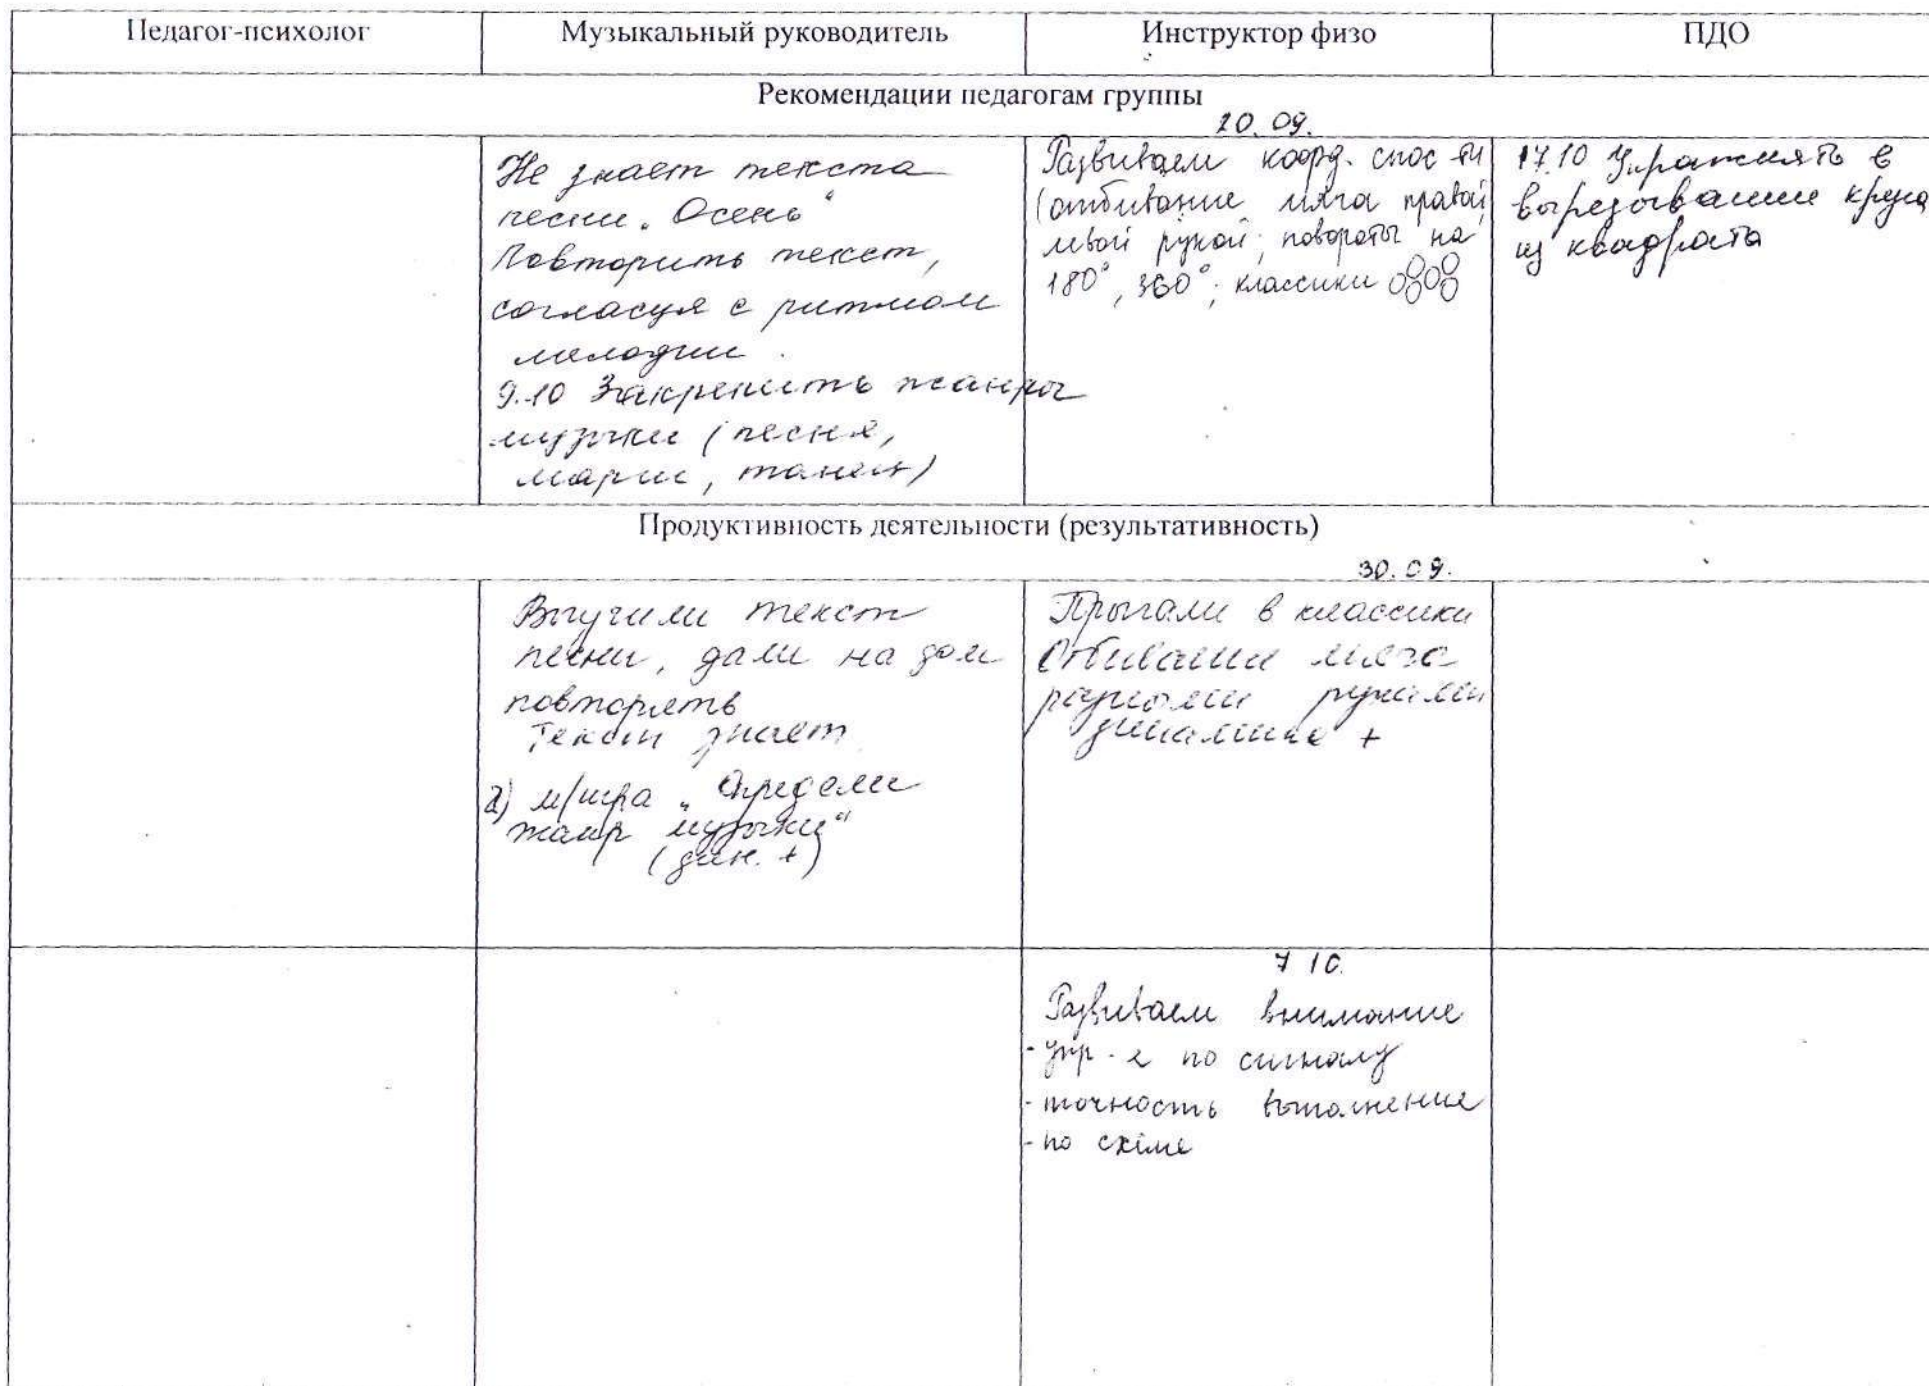 Педагог-психолог
Музыкальный руководитель
Инструктор физо
ПДО
Рекомендации педагогам группы
Не знает текста
песни „Осень“
Повторить текст,
согласуя с ритмом
мелодии.
9.10 Закрепить жанры
музыки (песня,
марш, танец)
20.09.
Развиваем коорд. спос-ти
(отбивание мяча правой,
левой рукой; повороты на
180°, 360°; классики
17.10 Упражнять в
вырезывании круга
из квадрата
Продуктивность деятельности (результативность)
Выучили текст
песни, дали на дом
повторять
Текст знает
2) м/игра „Определи
жанр музыки“
(дин. +)
30.09.
Прыгали в классики
Отбивали мяча
разными руками
динамика +
7 10.
Развиваем внимание
- упр-е по сигналу
- точность выполнение
- по схеме